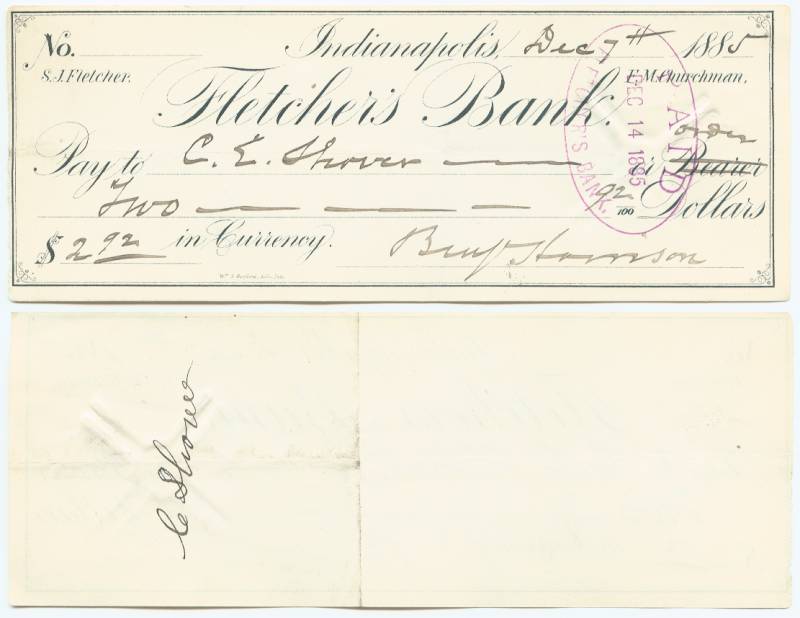 No. Indianapolis, Dec 7th 1885
S.J. Fletcher. F.M. Churchman,
Fletcher's Bank.
order
Pay to C. E. Shover — or Bearer
Two — — — — 92/100 Dollars
$ 2 92 in Currency. Benj Harrison
PAID
DEC 14 1885
FLETCHER'S BANK.
C Shover